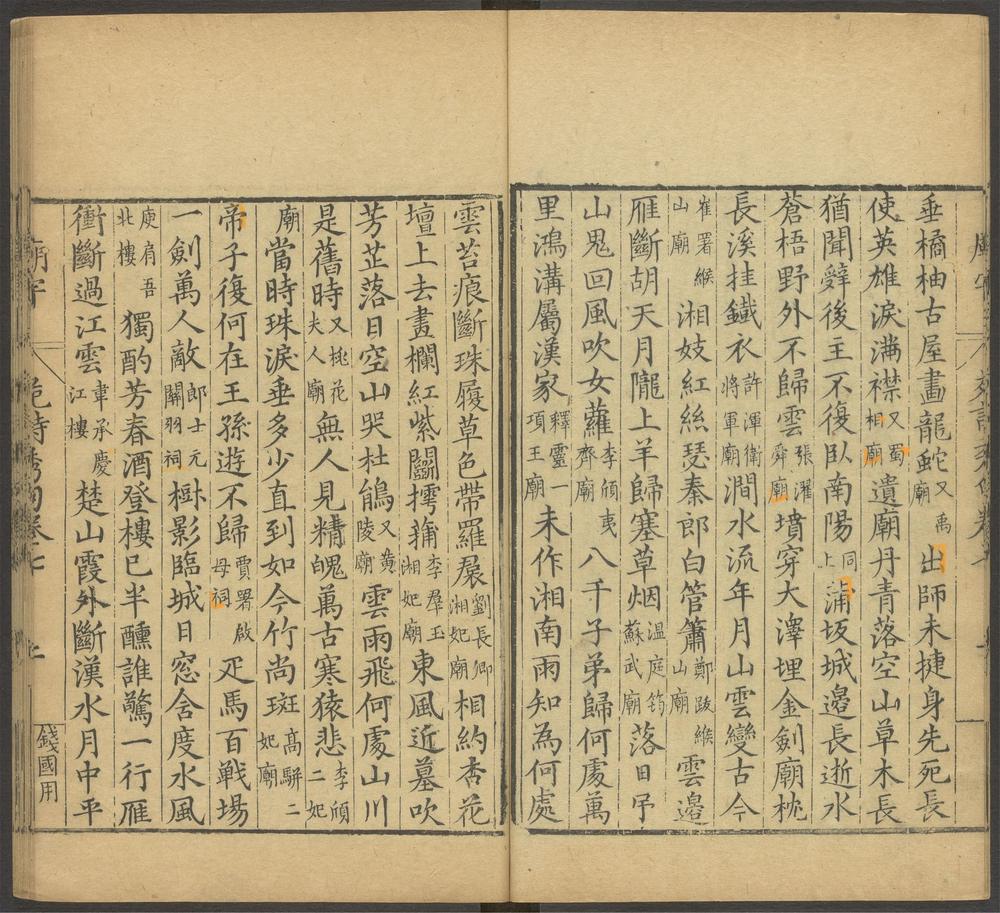 垂橘柚古屋畫龍蛇又禹廟出師未捷身先死長
使英雄淚滿襟又蜀相廟遺廟丹青落空山草木長
猶聞辭後主不復臥南陽同上蒲坂城邊長逝水
蒼梧野外不歸雲張濯舜廟墳穿大澤埋金劍廟枕
長溪挂鐵衣許渾衛將軍廟澗水流年月山雲變古今
崔署緱山廟湘妓紅絲瑟秦郎白管簫鄭跋緱山廟雲邊
雁斷胡天月隴上羊歸塞草烟溫庭筠蘇武廟落日吊
山鬼回風吹女蘿李頎夷齊廟八千子弟歸何處萬
里鴻溝屬漢家釋靈一項王廟未作湘南雨知為何處
雲苔痕斷珠履草色帶羅裠劉長卿湘妃廟相約杏花
壇上去畫欄紅紫鬭摴蒱李羣玉湘妃廟東風近墓吹
芳芷落日空山哭杜鵑又黃陵廟雲雨飛何處山川
是舊時又桃花夫人廟無人見精魄萬古寒猿悲李頎二妃
廟當時珠淚垂多少直到如今竹尚斑高駢二妃廟
帝子復何在王孫遊不歸賈署啟母祠疋馬百戰場
一劍萬人敵郎士元關羽祠樹影臨城日窓含度水風
庾肩吾北樓獨酌芳春酒登樓已半醺誰驚一行雁
衝斷過江雲韋承慶江樓楚山霞外斷漢水月中平
艶詩
卷十七
錢國用